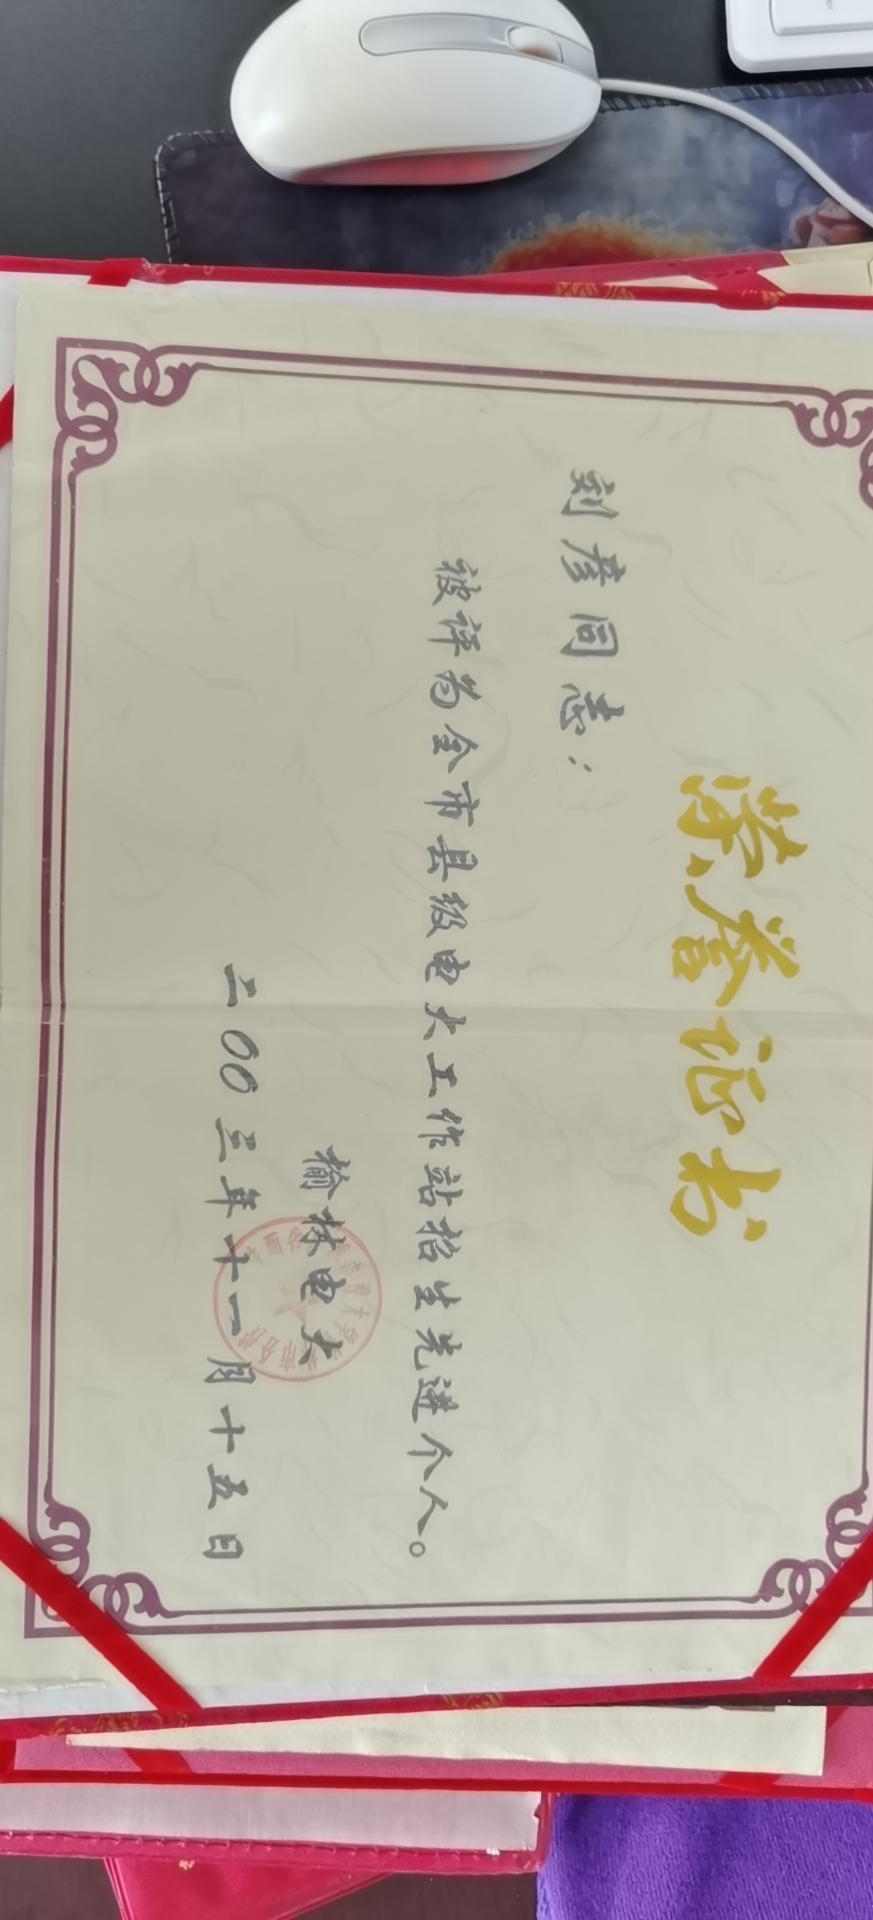 荣誉证书
刘彦同志：
被评为全市县级电大工作站招生先进个人。
榆林电大
二00三年十一月十五日